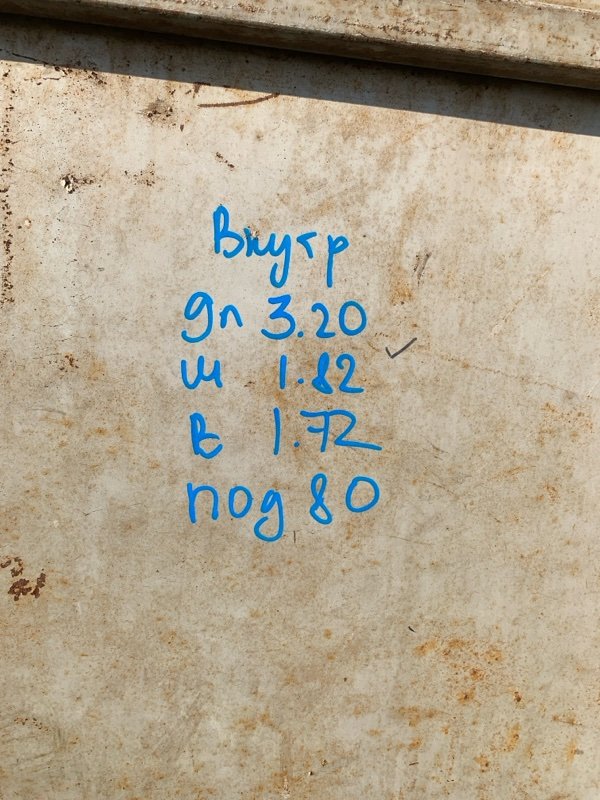 Внутр
дл 3.20
ш 1.82
в 1.72
под 80